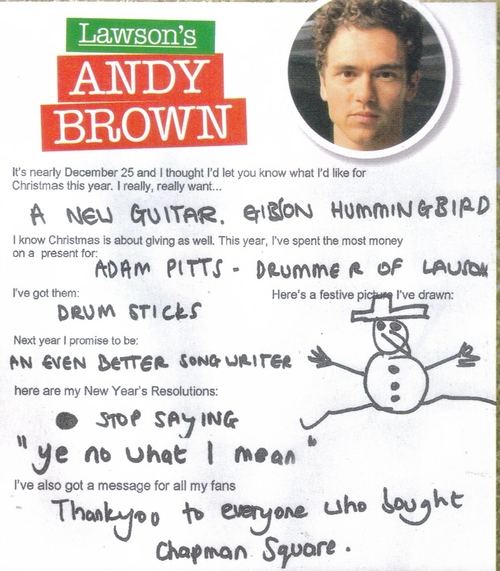 Lawson's
ANDY
BROWN
It's nearly December 25 and I thought I'd let you know what I'd like for
Christmas this year. I really, really want...
A NEW GUITAR. GIBSON HUMMINGBIRD
I know Christmas is about giving as well. This year, I've spent the most money
on a present for:
ADAM PITTS - DRUMMER OF LAWSON
I've got them:
Here's a festive picture I've drawn:
DRUM STICKS
Next year I promise to be:
AN EVEN BETTER SONGWRITER
here are my New Year's Resolutions:
● STOP SAYING
"ye no what I mean"
I've also got a message for all my fans
Thankyoo to everyone who bought
Chapman Square.